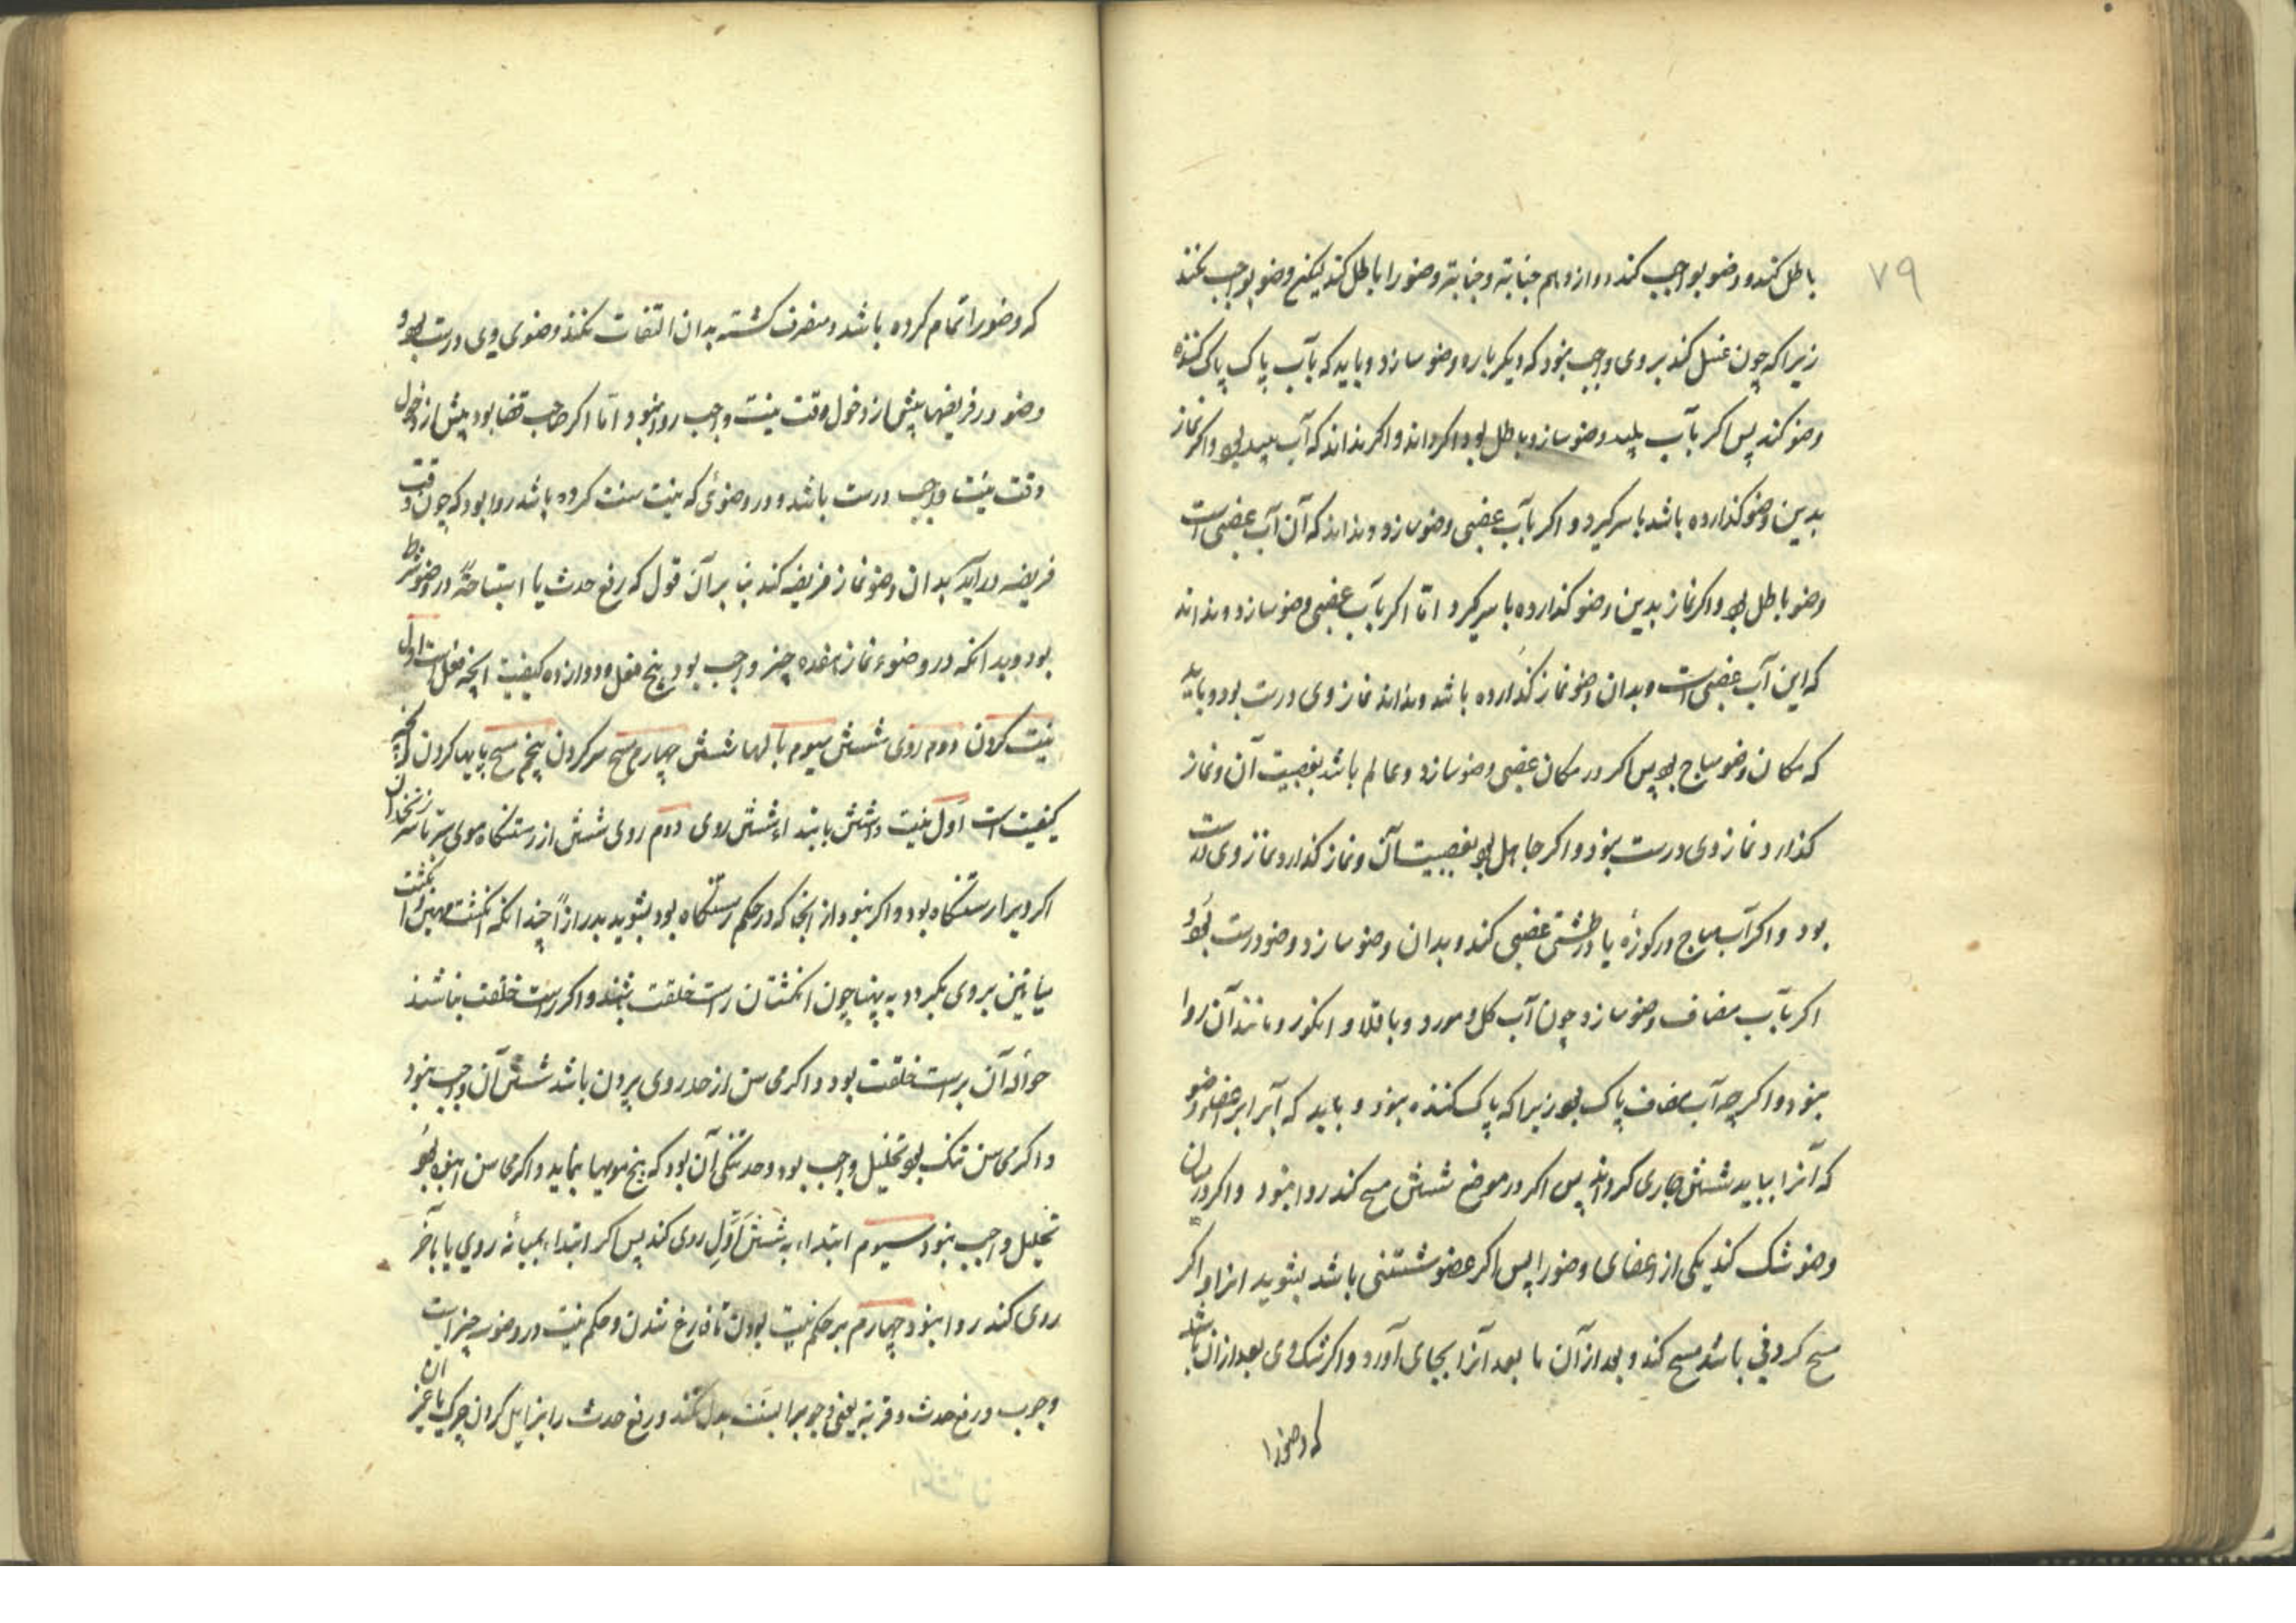 ۷۹
باطل کند و وضو بواجب کند دوازدهم جنابة و جنابة وضو را باطل کند لیکن وضو بواجب نکند
زیرا که چون غسل کند بر وی واجب نبود که دیگر باره وضو سازد و باید که بآب پاک پاک کننده
وضو کند پس اکر بآب پلید وضو سازد باطل بود اکر داند و اکر نداند که آب پلید بود و اکر نماز
بدین وضو کذارده باشد با سر کیرد و اکر بآب غصبی وضو سازد و بداند که آن آب غصبی است
وضو باطل بود و اکر نماز بدین وضو کذارده با سر کیرد اما اکر بآب غصبی وضو سازد و نداند
که این آب غصبی است و بدان وضو نماز کذارده باشد و نداند نماز وی درست بود و باید
که مکان وضو مباح بود پس اکر در مکان غصبی وضو سازد و عالم باشد بغصبیت آن و نماز
کذارد نماز وی درست نبود و اکر جاهل بود بغصبیت آن و نماز کذارد نماز وی درست
بود و اکر آب مباح در کوزهٔ یا در طشتی غصبی کند و بدان وضو سازد وضو درست بود
اکر بآب مضاف وضو سازد چون آب کل و مورد و باقلا و انکور و مانند آن روا
نبود و اکر چه آب مضاف پاک بود زیرا که پاک کننده نبود و باید که آب را بر اعضاء وضو
که آنرا بباید شستن جاری کرداند پس اکر در موضع شستن مسح کند روا نبود و اکر در میان
وضو شک کند یکی از اعضای وضو را پس اکر عضو شستنی باشد بشوید انرا و اکر
مسح کردنی باشد مسح کند و بعد از آن ما بعد آنرا بجای آورد و اکر شک وی بعد از ان باشد
که وضو را
که وضو را تمام کرده باشد و منصرف کشته بدان التفات نکند وضوی وی درست بود
وضو در فریضها پیش از دخول وقت بنیت واجب روا نبود اما اکر صاحب قضا بود پیش از دخول
وقت بنیت واجب درست باشد و در وضوئی که بنیت سنت کرده باشد روا بود که چون وقت
فریضه درآید بدان وضو نماز فریضه کند بنا بر آن قول که رفع حدث یا استباحة در وضو شرط
بود و بدانکه در وضوء نماز هفده چیز واجب بود پنج فعل و دوازده کیفیت انچه فعل است اول
نیت کردن دوم روی شستن سیوم بالها شستن چهارم مسح سر کردن پنجم مسح پایها کردن انچه
کیفیت است اول نیت داشتن بابتداء شستن روی دوم روی شستن از رستنکاه موی سر تا سر زنخدان
اکر ویرا رستنکاه بود و اکر نبود از انجا که در حکم رستنکاه بود بشوید بدرازا چندانکه انکشت مهین و انکشت
میانین بر وی بکردد به پهنا چون انکشتان راست خلقت باشند و اکر راست خلقت نباشند
حوالهٔ آن براست خلقت بود و اکر محاسن از حد روی بیرون باشد شستن آن واجب نبود
و اکر محاسن تنک بود تخلیل واجب بود و حد تنکی آن بود که بیخ مویها بنماید و اکر محاسن انبوه بود
تخلیل واجب نبود سیوم ابتداء به شستن اول روی کند پس اکر ابتداء بمیانهٔ روی یا بآخر
روی کند روا نبود چهارم بر حکم نیت بودن تا فارغ شدن و حکم نیت در وضو سه چیز است
وجوب و رفع حدث و قربة یعنی وجوبرا بسنت بدل نکند و رفع حدث را بزایل کردن چرک یا غیر ان